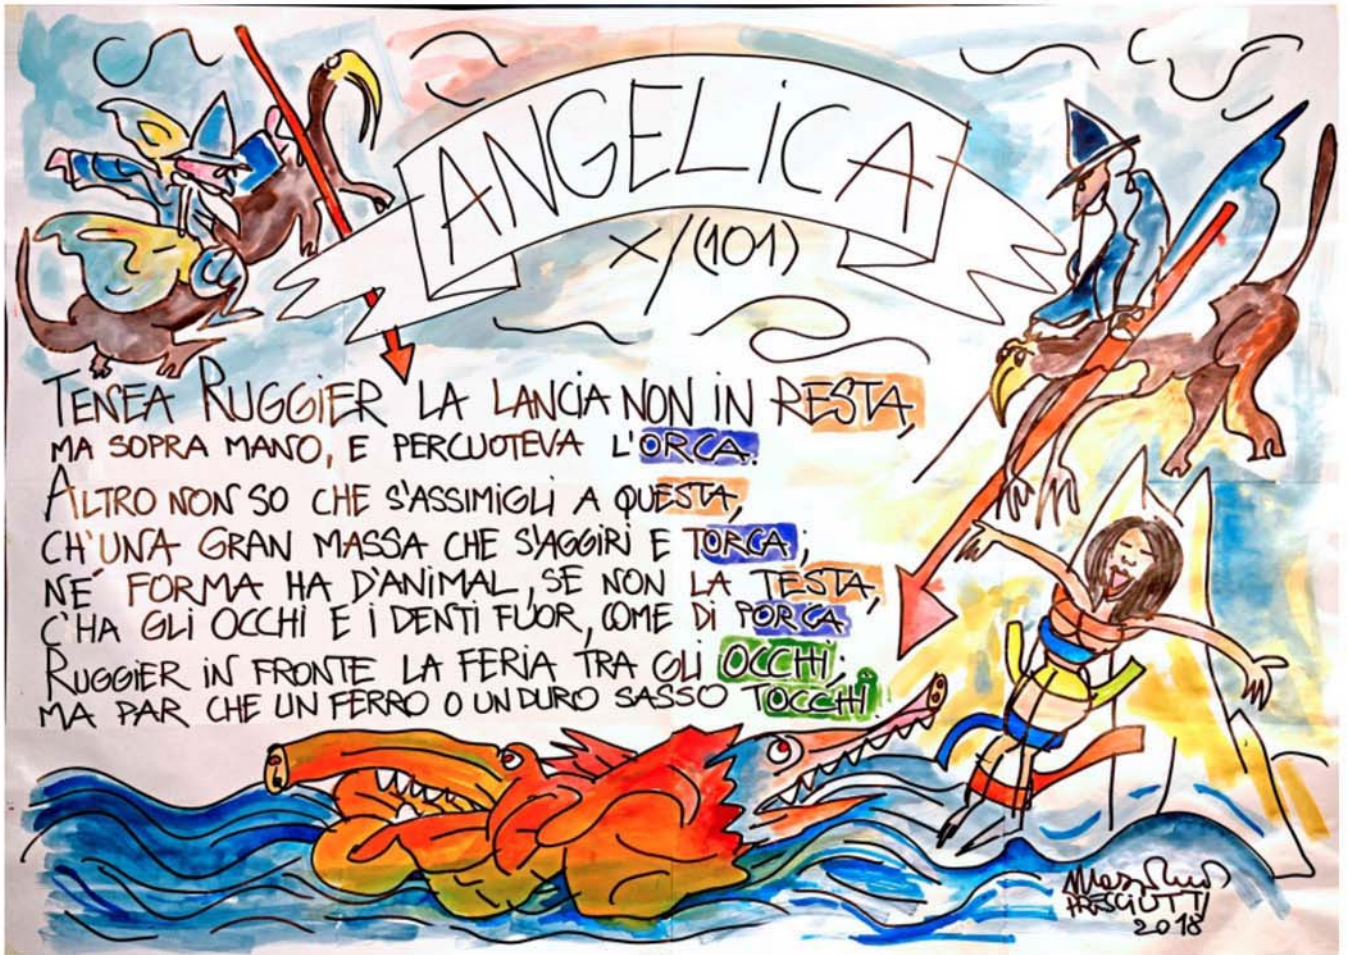 ANGELiCA
X/(101)
TENEA RUGGiER LA LANCiA NON iN RESTA,
MA SOPRA MANO, E PERCUOTEVA L'ORCA.
ALTRO NON SO CHE S'ASSiMiGLi A QUESTA,
CH'UNA GRAN MASSA CHE S'AGGiRi E TORCA;
NÉ FORMA HA D'ANiMAL, SE NON LA TESTA,
C'HA GLi OCCHi E i DENTi FUOR, COME Di PORCA
RUGGiER iN FRONTE LA FERiA TRA GLi OCCHi;
MA PAR CHE UN FERRO O UN DURO SASSO TOCCHi.
PRESCiUTTi
2018